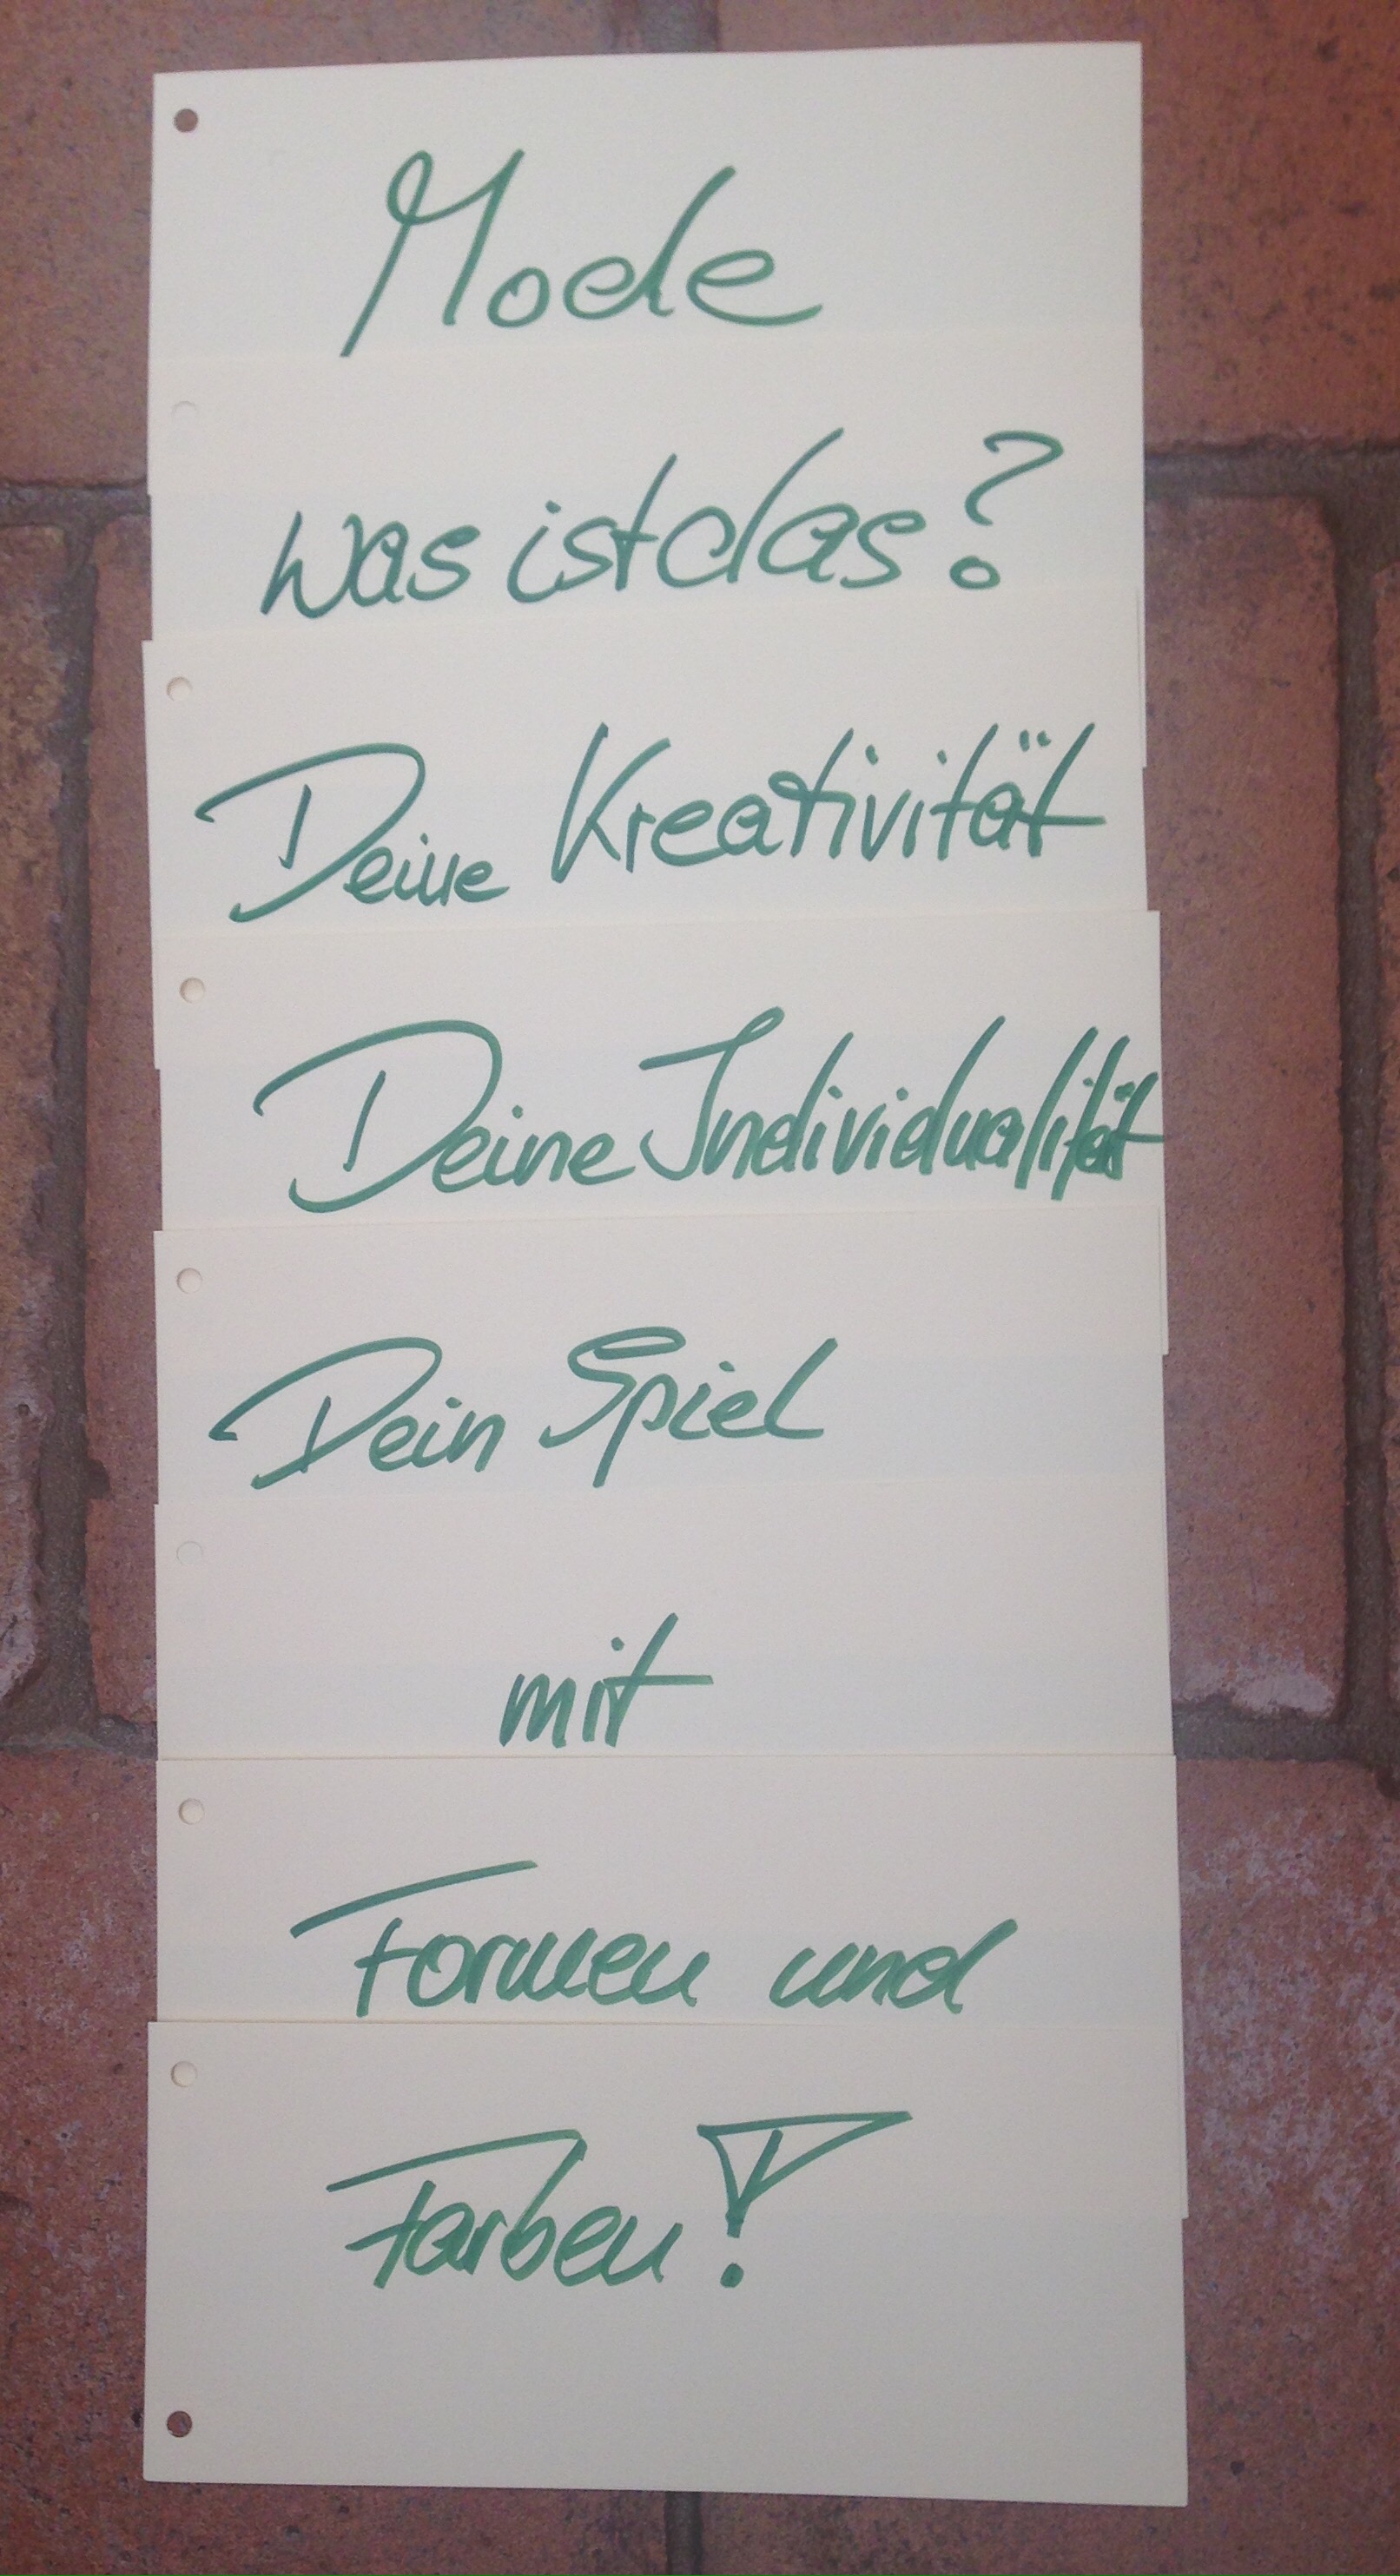 Mode
was ist das?
Deine Kreativität
Deine Individualität
Dein Spiel
mit
Formen und
Farben!